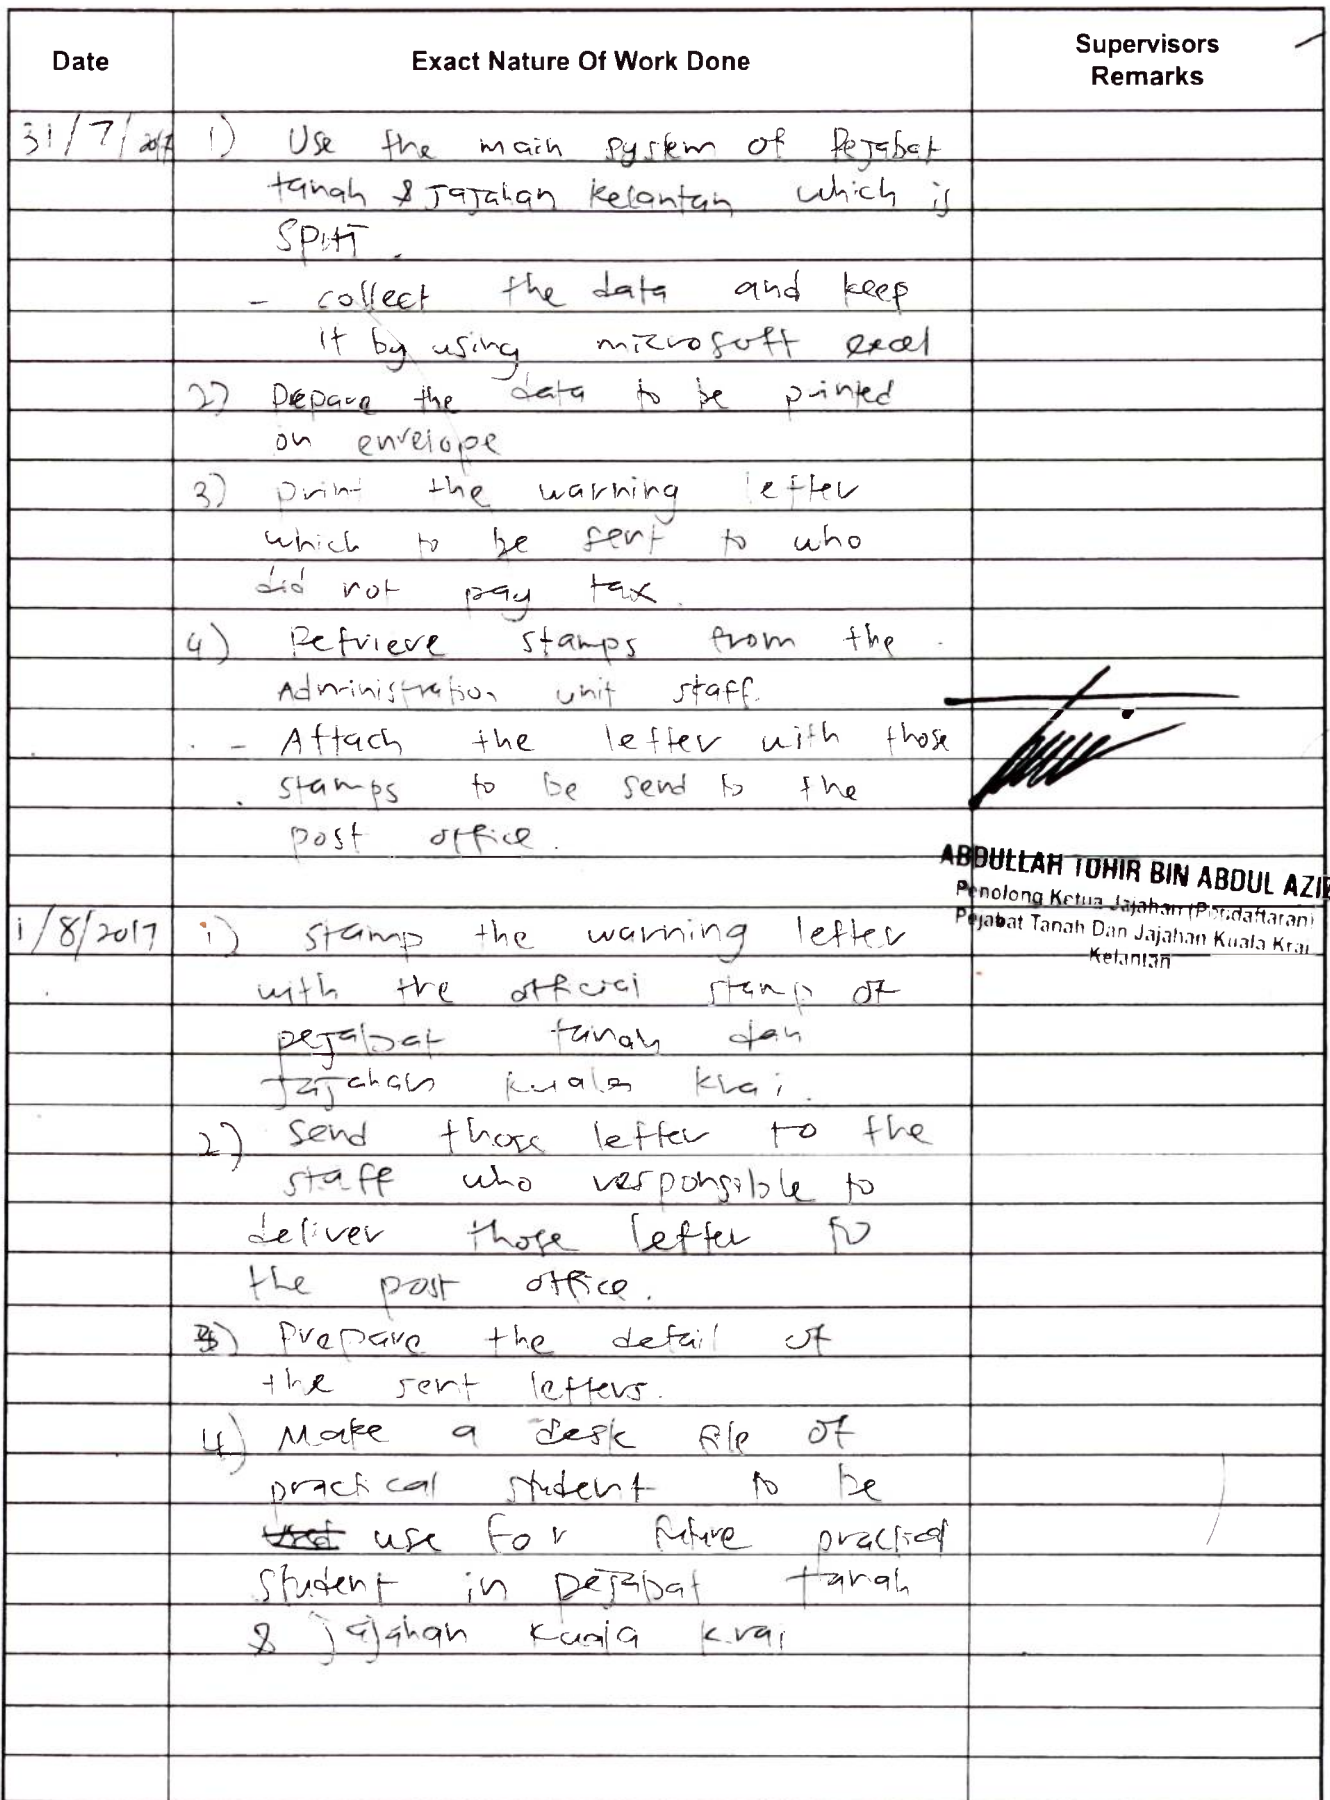 Date Exact Nature Of Work Done Supervisors
Remarks
31/7/2017 1) Use the main system of Pejabat
tanah & Jajahan Kelantan which is
- collect the data and keep
it by using microsoft excel
2) Prepare the data to be printed
on envelope
3) print the warning letter
which to be sent to who
did not pay tax.
4) Retrieve stamps from the
Administration unit staff.
- Attach the letter with those
stamps to be send to the
post office.
ABDULLAH TOHIR BIN ABDUL AZI
Penolong Ketua Jajahan (Pendaftaran)
Pejabat Tanah Dan Jajahan Kuala Krai
Kelantan
1/8/2017 1) Stamp the warning letter
with the official stamp of
pejabat tanah dan
Jajahan kuala krai.
2) Send those letter to the
staff who responsible to
deliver those letter to
the post office.
3) Prepare the detail of
the sent letters.
4) Make a desk file of
practical student to be
use for future practical
student in pejabat tanah
& jajahan Kuala krai